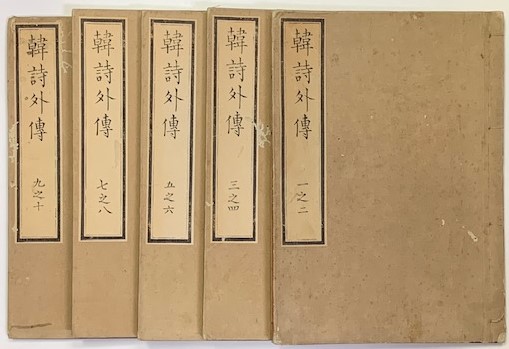 韓詩外傳
一之二
韓詩外傳
三之四
韓詩外傳
五之六
韓詩外傳
七之八
韓詩外傳
九之十